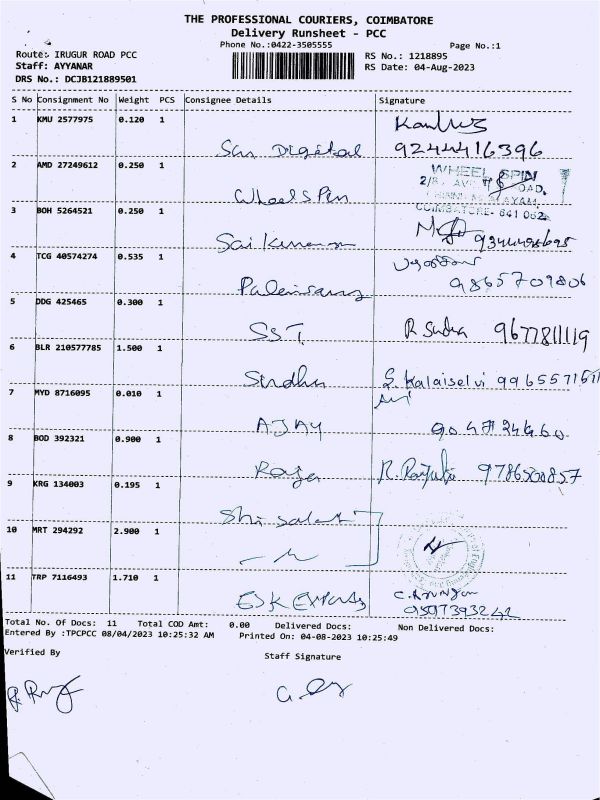 THE PROFESSIONAL COURIERS, COIMBATORE
Delivery Runsheet - PCC
Phone No.:0422-3505555 Page No.:1
Route: IRUGUR ROAD PCC RS No.: 1218895
Staff: AYYANAR RS Date: 04-Aug-2023
DRS No.: DCJB121889501
S No Consignment No Weight PCS Consignee Details Signature
1 KMU 2577975 0.120 1
Sai Digital 9244416396
2 AMD 27249612 0.250 1 WHEEL SPIN
Wheel Spin
COIMBATORE- 641 062
3 BOH 5264521 0.250 1
Sai Kumaran
4 TCG 40574274 0.535 1
9865709806
5 DDG 425465 0.300 1
SST R Sudha 9677811119
6 BLR 210577785 1.500 1
Sindhu S. Kalaiselvi
7 MYD 8716095 0.010 1
AJAY
8 BOD 392321 0.900 1
Raja 9786500857
9 KRG 134003 0.195 1
10 MRT 294292 2.900 1
11 TRP 7116493 1.710 1
ESK Exports
9597393242
Total No. Of Docs: 11 Total COD Amt: 0.00 Delivered Docs: Non Delivered Docs:
Entered By :TPCPCC 08/04/2023 10:25:32 AM Printed On: 04-08-2023 10:25:49
Verified By
Staff Signature